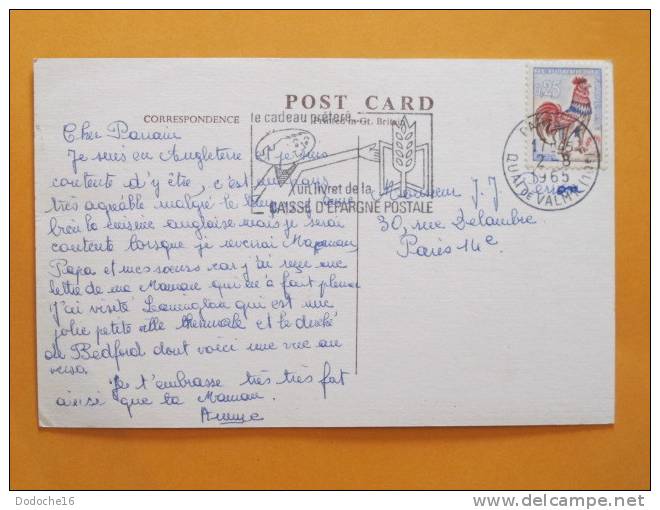 POST CARD
CORRESPONDENCE
Printed in Gt. Britain
le cadeau préféré
un livret de la
CAISSE D'EPARGNE POSTALE
0,25
17H45
1965
QUAI DE VALMY
Cher Parrain
Je suis en Angleterre et je suis
contente d'y être, c'est un pays
très agréable malgré le temps, j'aime
bien la cuisine anglaise mais je serai
contente lorsque je reverrai Maman
Papa et mes sœurs car j'ai reçu une
lettre de ma Maman qui m'a fait pleurer
J'ai visité Leamington qui est une
jolie petite ville thermale et le duché
de Bedford dont voici une vue au
verso.
Je t'embrasse très très fort
ainsi que ta Maman.
Monsieur J. J.
30, rue Delambre
Paris 14e
Dodoche16
www.delcampe.net